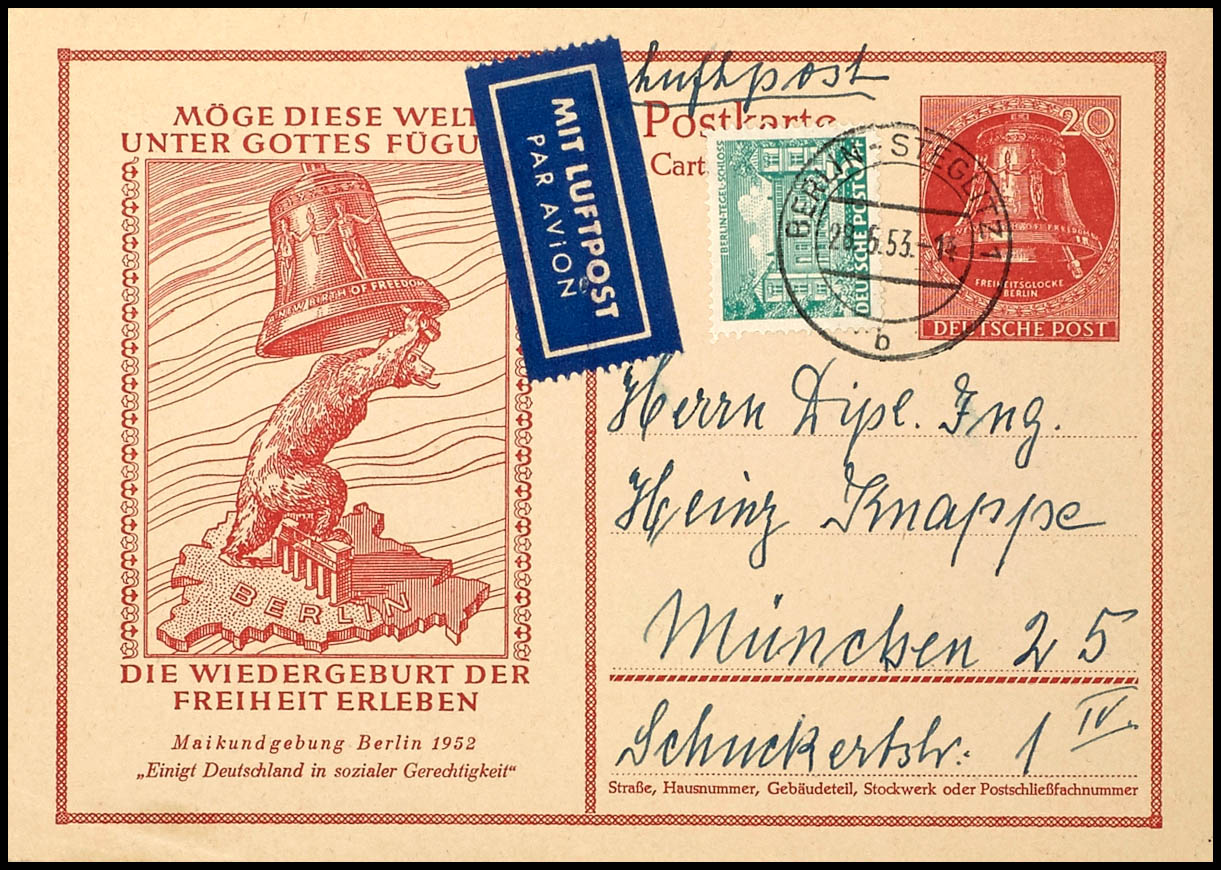 MÖGE DIESE WELT
UNTER GOTTES FÜGU
NEW BIRTH OF FREEDOM
BERLIN
DIE WIEDERGEBURT DER
FREIHEIT ERLEBEN
Maikundgebung Berlin 1952
„Einigt Deutschland in sozialer Gerechtigkeit“
MIT LUFTPOST
PAR AVION
Luftpost
Postkarte
Cart
BERLIN-TEGEL-SCHLOSS
DEUTSCHE POST
BERLIN-STEGLITZ 1
6.53.-14
b
20
FREIHEITSGLOCKE
BERLIN
DEUTSCHE POST
Herrn Dipl. Ing.
Heinz Knappe
München 25
Schuckertstr. 1 IV.
Straße, Hausnummer, Gebäudeteil, Stockwerk oder Postschließfachnummer